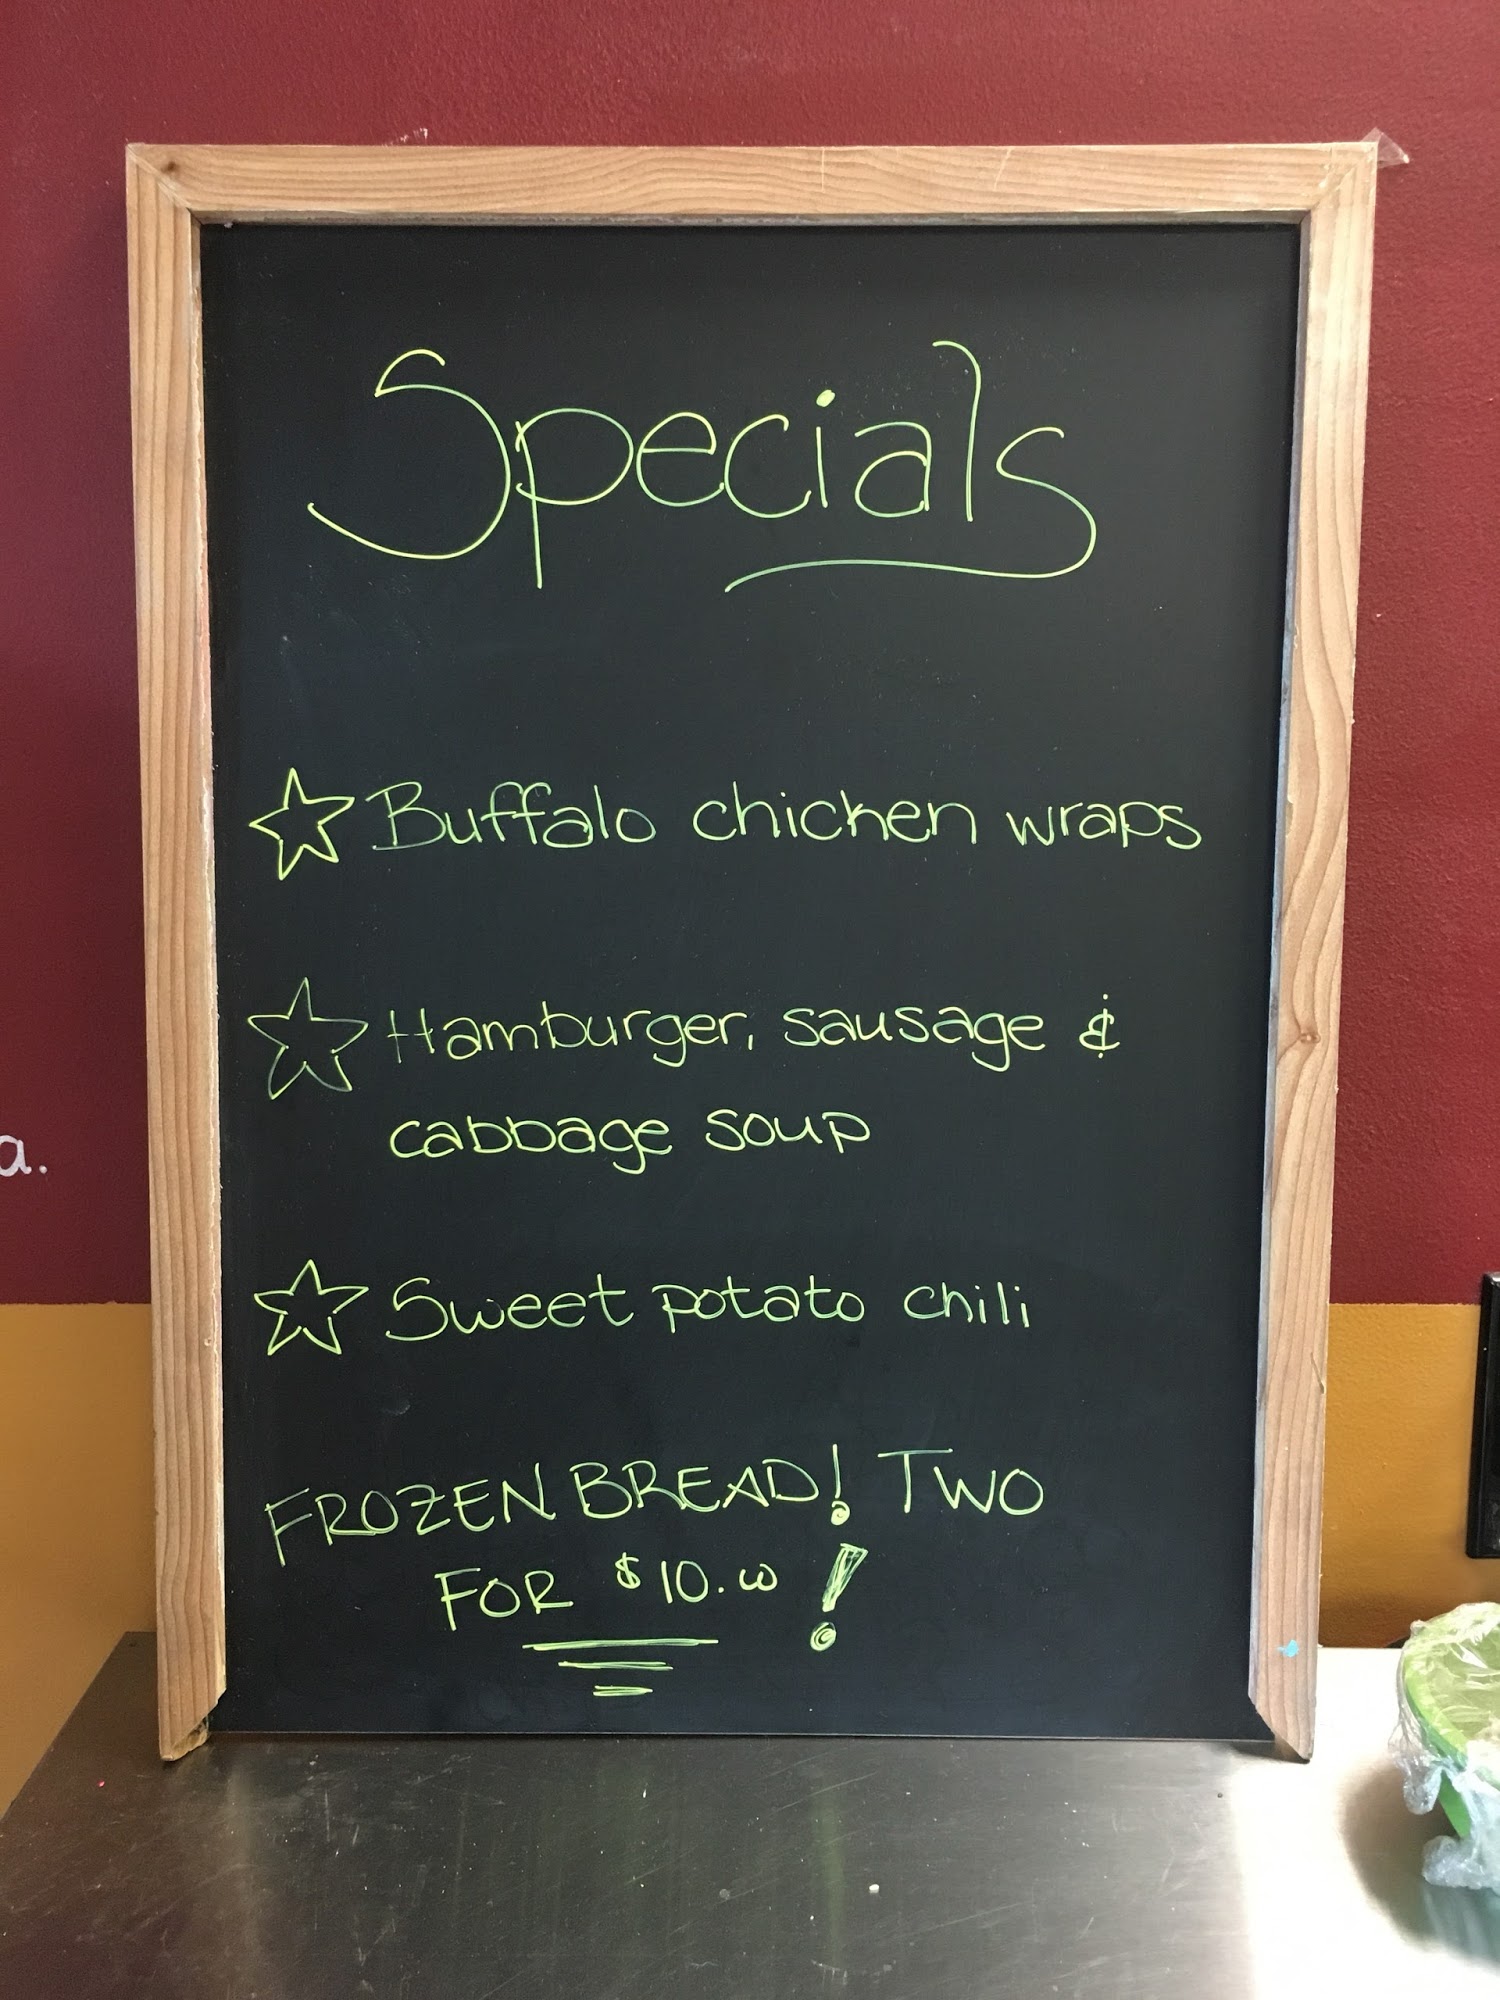 Specials
Buffalo chicken wraps
Hamburger, sausage &
cabbage soup
a.
Sweet potato chili
FROZEN BREAD! TWO
FOR $10.00!